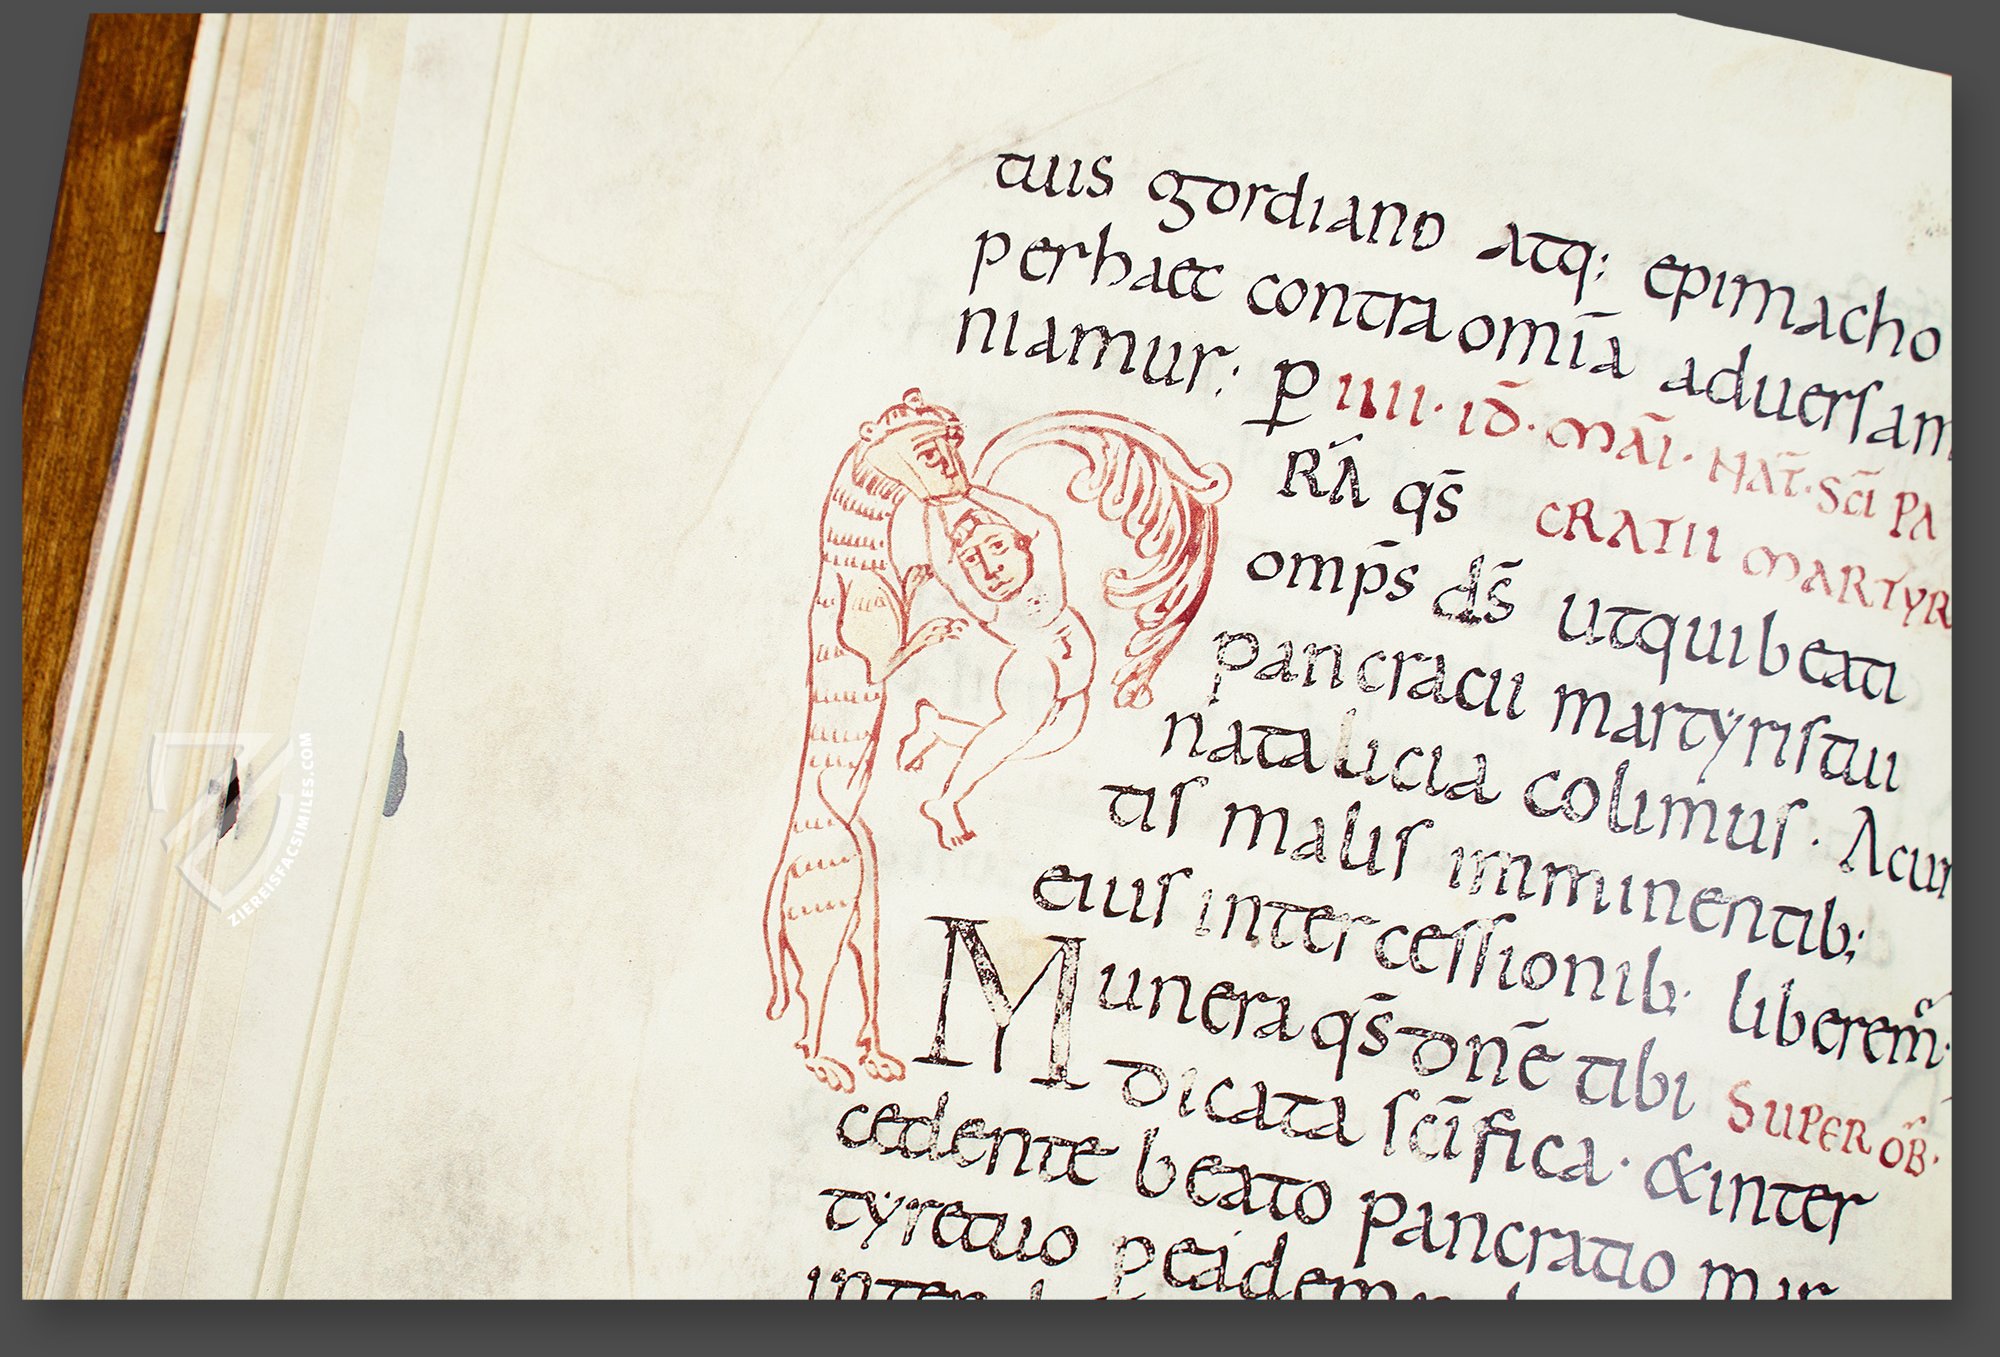 tuis gordiano atq; epimacho
perhaec contra omīa aduersan
niamur; ꝑ IIII· ID̄· MĀI· NAT̄· SCĪ PA
RĀ qs̄ CRATII MARTYR
omp̄s ds̄ utquibeati
pancracii martyristui
natalicia colimus· Acun
tis malis imminentib;
eius intercessionib; liberem̃·
Munera qs̄ dn̄e tibi SUPER OB̃·
dicata scīfica· &inter
cedente beato pancratio mar
tyretuo
ZIEREISFACSIMILES.COM